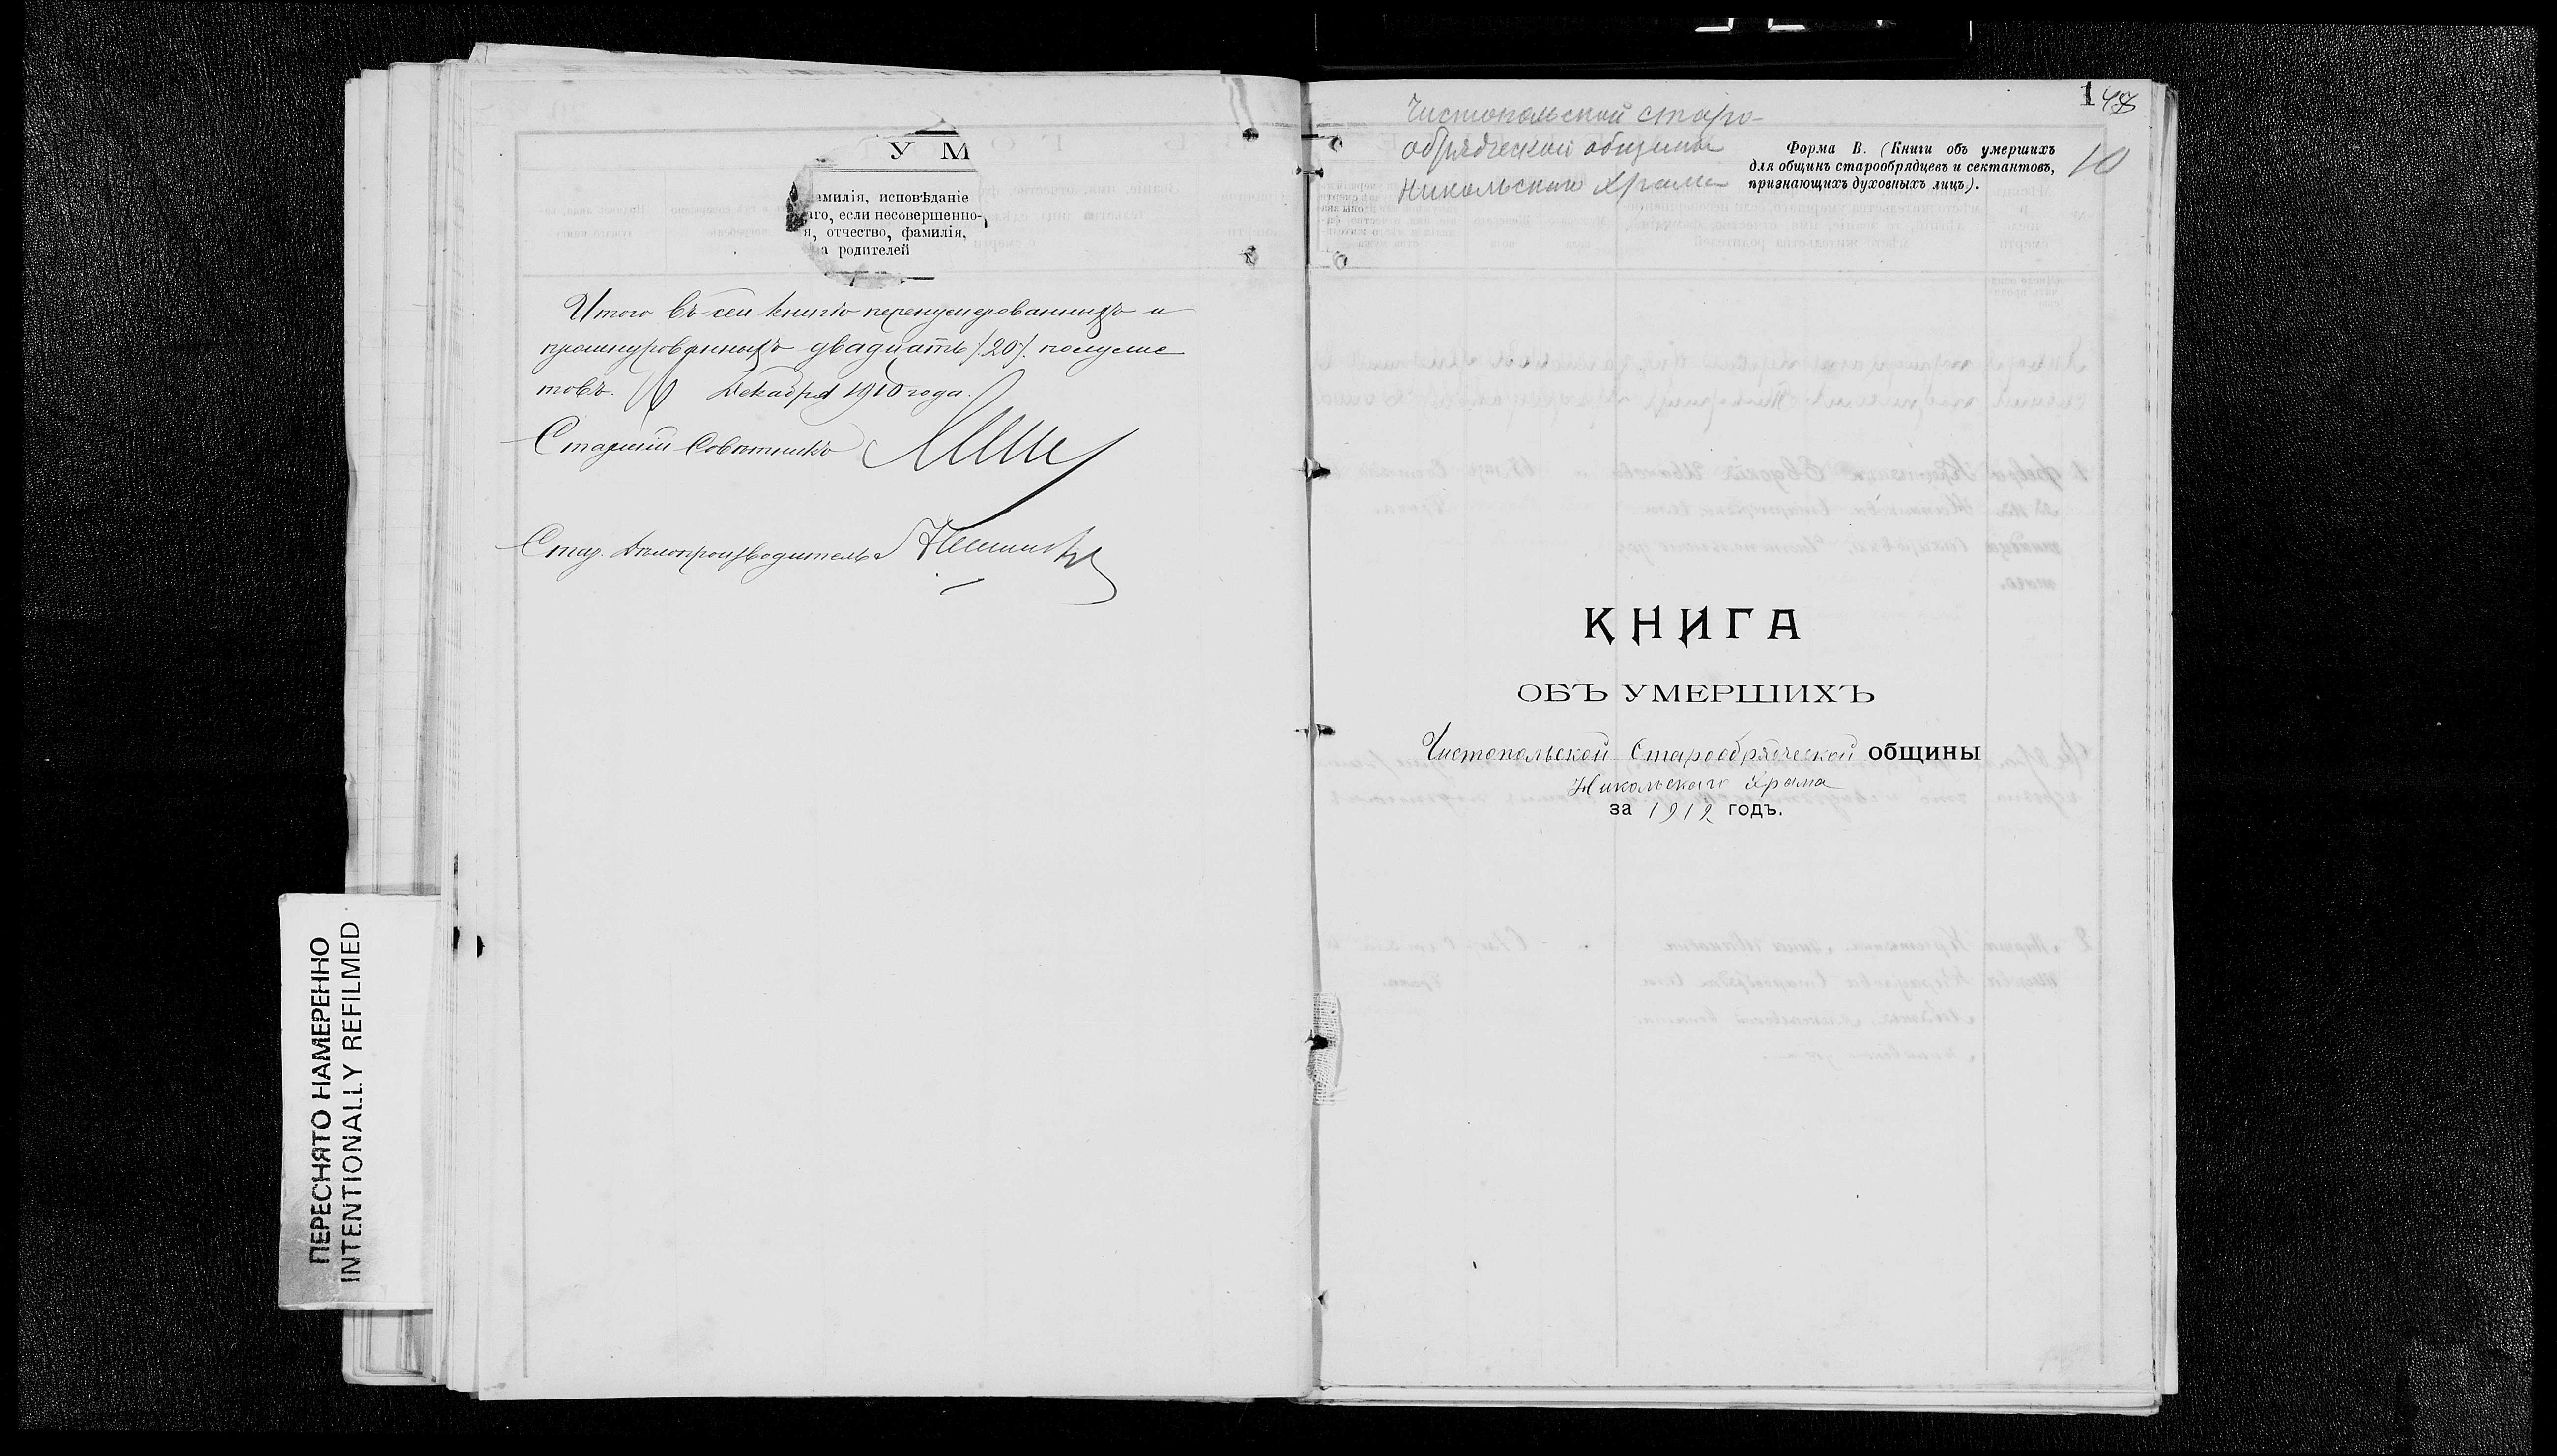 У М
амилія, исповѣданіе
аго, если несовершенно-
я, отчество, фамилія,
а родителей
Итого въ сей книгѣ перенумерованныхъ и
прошнурованныхъ двадцать /20/ полулис
товъ. Декабря 1910 года.
Старшій Совѣтникъ
Стар. Дѣлопроизводитель
ПЕРЕСНЯТО НАМЕРЕННО
INTENTIONALLY REFILMED
148
Чистопольской старо-
обрядческой общины
Никольскаго Храма
Форма В. (Книги объ умершихъ
для общинъ старообрядцевъ и сектантовъ,
признающихъ духовныхъ лицъ).
10
КНИГА
ОБЪ УМЕРШИХЪ
Чистопольской Старообрядческой общины
Никольскаго Храма
за 1912 годъ.